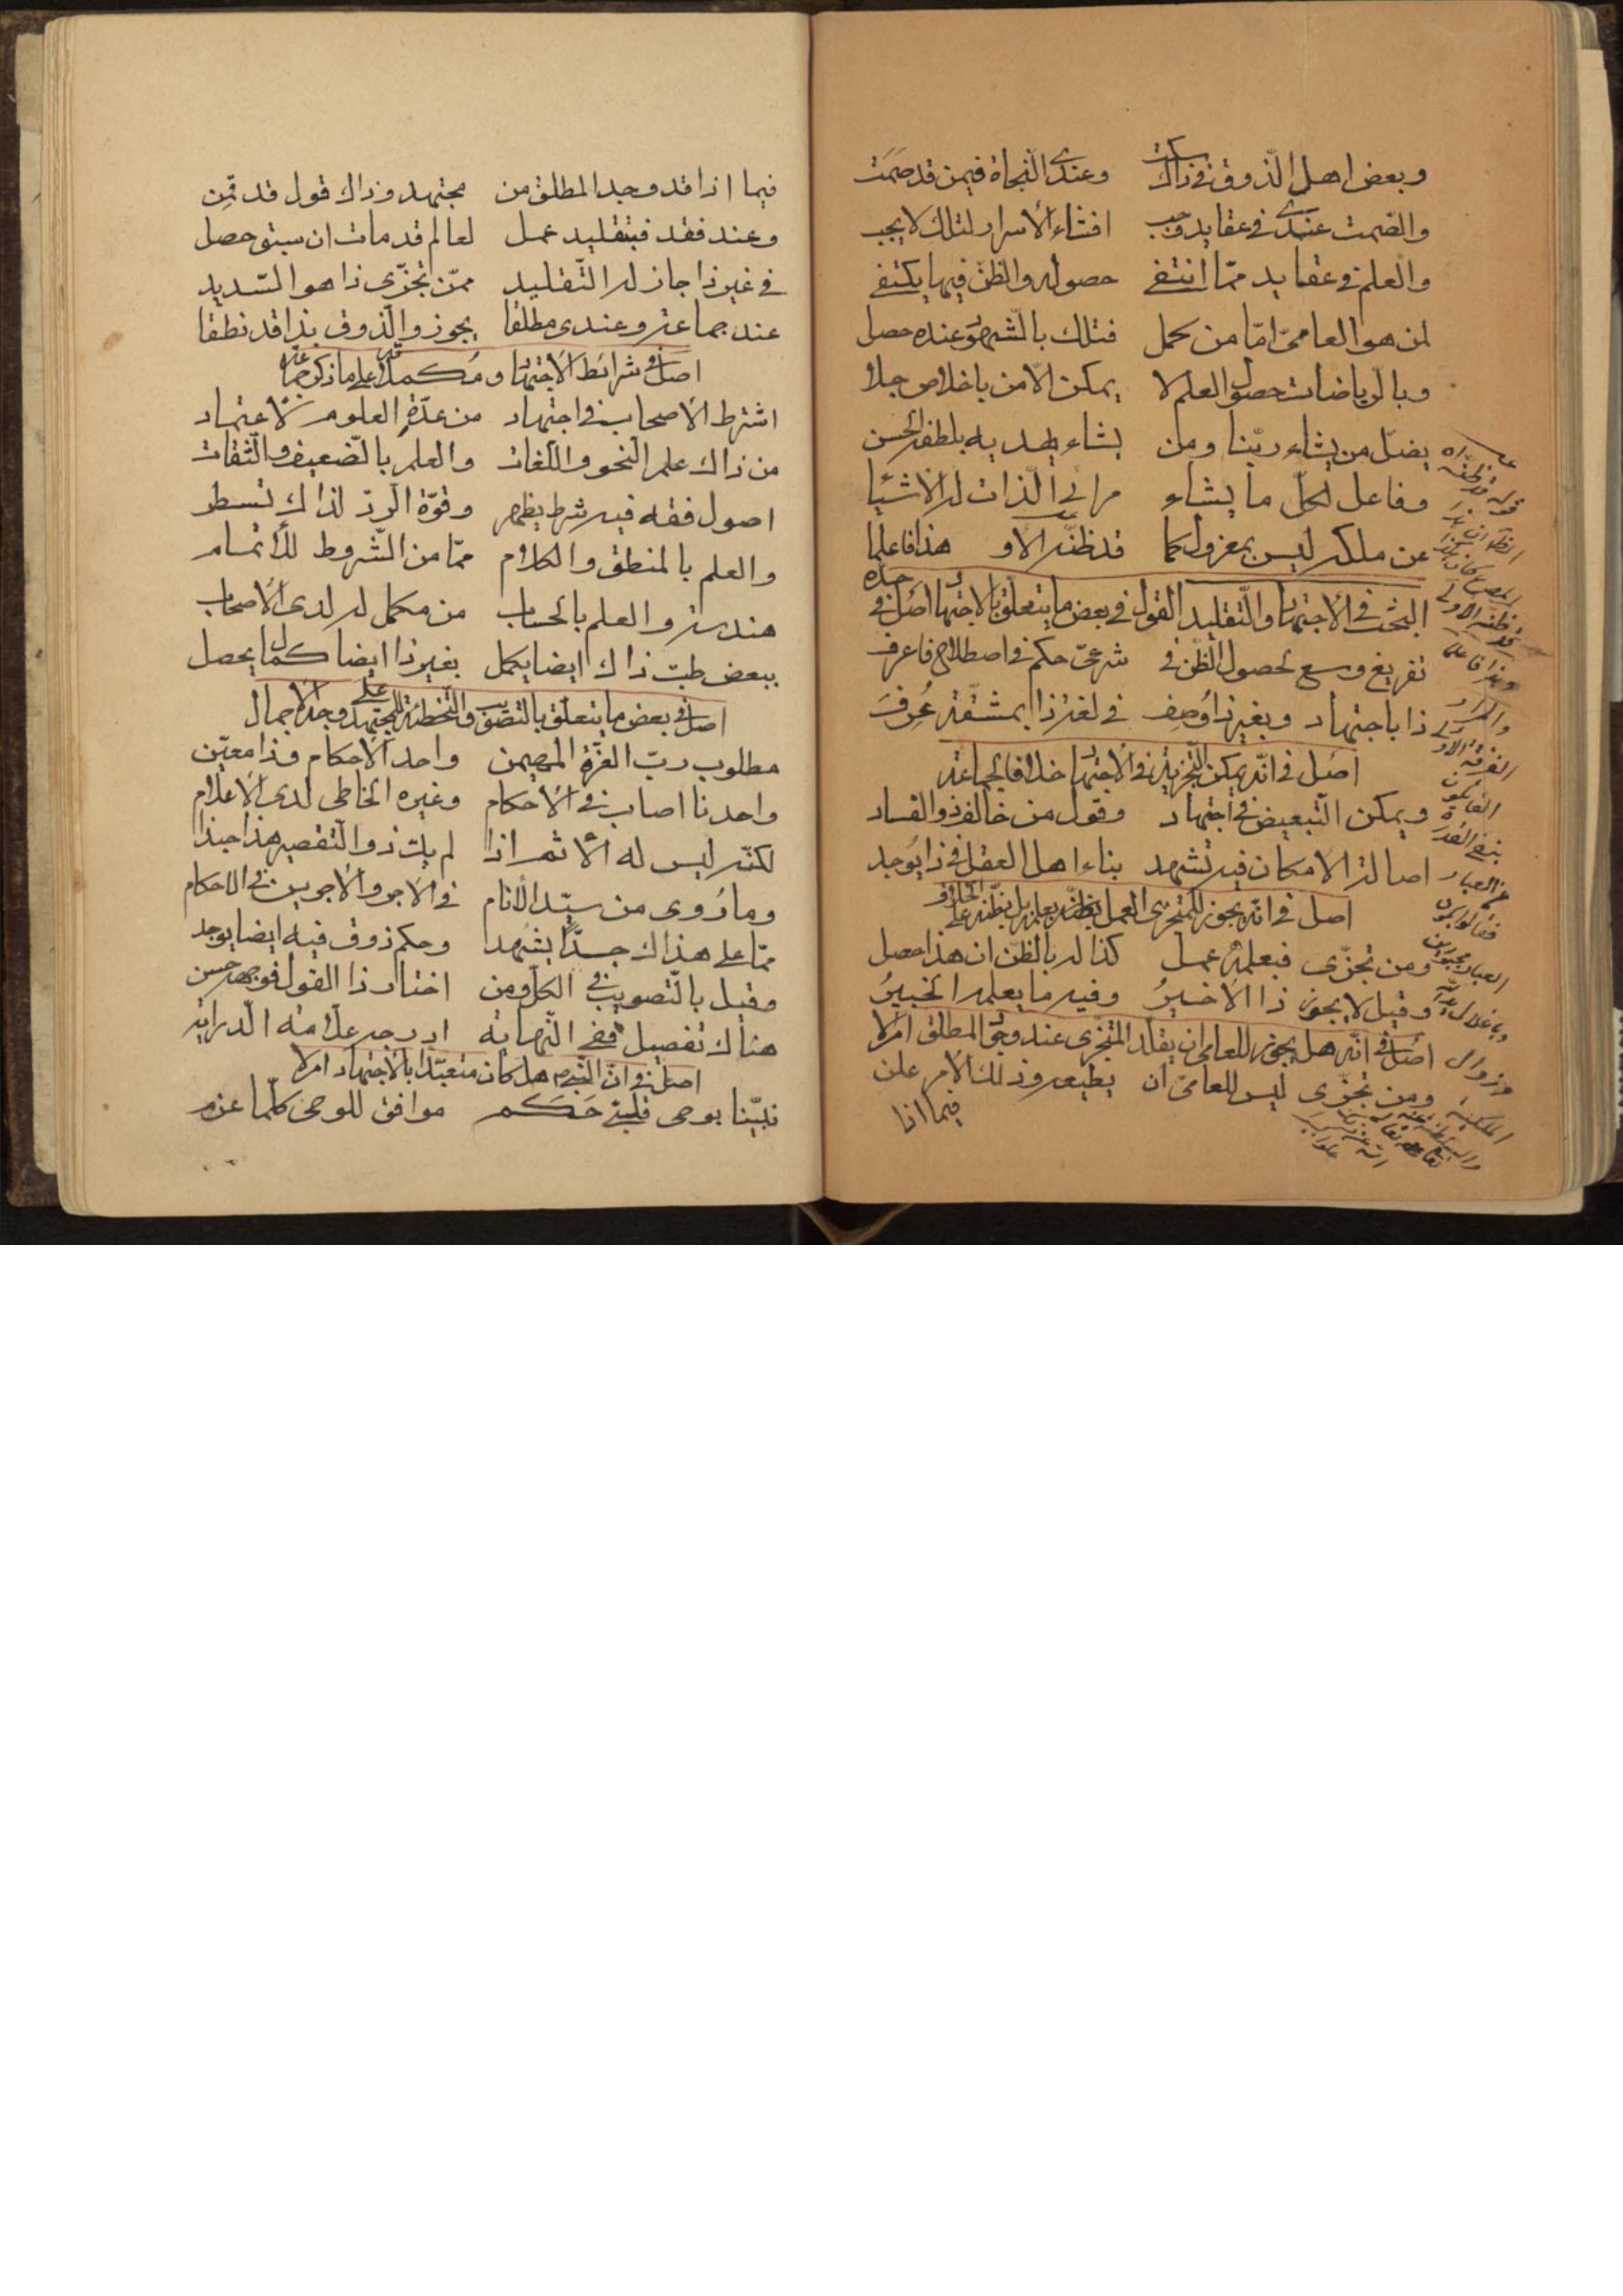 وبعض اهل الذوق في ذاك سكت وعندي النجاة فيمن قد صمت
والصمت عندي في عقايد وجب افشاء الأسرار لتلك لا يجب
والعلم في عقايد مما انتفى حصوله والظن فيها يكتفى
لمن هو العامي اما من كمل فتلك بالشهود عنده حصل
وبالرياضات حصول العلم لا يمكن الا من باخلاص جلا
يضل من يشاء ربنا ومن يشاء يهديه بلطفه الحسن
وفاعل لكل ما يشاء مرائي الذات له الاشيا
عن ملكه ليس بمعزول كما قد ظنه الاو هذا فاعلما
البحث في الاجتهاد والتقليد القول في بعض ما يتعلق بالاجتهاد اصل في حده
تفريغ وسع لحصول الظن في شرعي حكم في اصطلاح فاعرف
ذا باجتهاد وبغير ذا وصف في لغة ذا بمشقة عرف
اصل في انه يمكن التجزية في الاجتهاد خلافا لجماعة
ويمكن التبعيض في اجتهاد وقول من خالف ذو الفساد
اصالة الامكان فيه تشهد بناء اهل العقل في ذا يوجد
اصل في انه يجوز للمتجزي العمل بظنه بعلمه بل بظنه على الخلاف
ومن تجزى فبعلمه عمل كذا له بالظن ان هذا حصل
وقيل لا يجوز ذا الاخير وفيه ما يعلمه الخبير
اصل في انه هل يجوز للعامي ان يقلد المتجزي عند وجود المطلق ام لا
ومن تجزى ليس للعامي ان يطيعه وذلك الامر علن
فيما اذا
قوله قد ظنه
قد ظنه الاولى
وهذا فاعلما
والمراد
الفرقة الاولى
القائلون
بنفي القدرة
عن العباد
فقالوا بكون
العباد مجبورين
فيما اذا قد وجد المطلق من مجتهد وذاك قول قد قمن
وعند فقد فبتقليد عمل لعالم قد مات ان سبق حصل
في غير ذا جاز له التقليد ممن تجزى ذا هو السديد
عند جماعة وعندي مطلقا يجوز والذوق بذا قد نطقا
اصل في شرائط الاجتهاد ومكملاته على ما ذكره جماعة
اشترط الاصحاب في اجتهاد من عدة العلوم لاعتماد
من ذاك علم النحو واللغات والعلم بالضعيف والثقات
اصول فقه فيه شرط يظهر وقوة الرد لذاك تسطر
والعلم بالمنطق والكلام مما من الشروط للأتمام
هندسة والعلم بالحساب من مكمل له لدى الاصحاب
ببعض طب ذاك ايضا يكمل بغير ذا ايضا كمال يحصل
اصل في بعض ما يتعلق بالتصويب والتخطئة للمجتهد على وجه الاجمال
مطلوب رب العزة المهيمن واحد الاحكام وذا معين
واحدنا اصاب في الاحكام وغيره الخاطي لدى الاعلام
لكنه ليس له الاثم اذا لم يك ذو التقصير هذا حبذا
وما روى من سيد الأنام في الاجر والاجرين في الاحكام
مما على هذاك جدا يشهد وحكم ذوق فيه ايضا يوجد
وقيل بالتصويب في الكل ومن اختار ذا القول فوجهه حسن
هناك تفصيل ففي النهاية ادرجه علامة الدراية
اصل في ان النبي هل كان متعبدا بالاجتهاد ام لا
نبينا بوحي قلبه حكم موافق للوحي كلما عزم